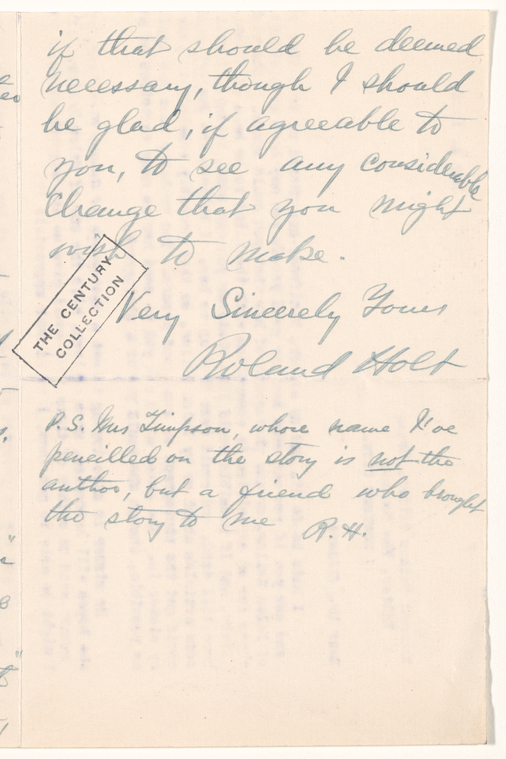 if that should be deemed
necessary, though I should
be glad, if agreeable to
you, to see any considerable
change that you might
wish to make.
THE CENTURY
COLLECTION
Very Sincerely Yours
Roland Holt
P.S. Mrs Timpson, whose name I've
pencilled on the story is not the
author, but a friend who brought
the story to me R.H.